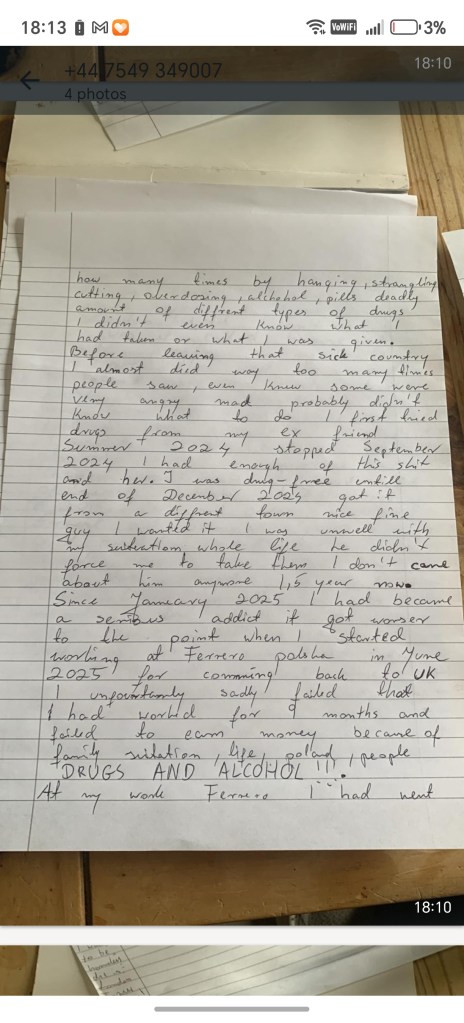 18:13
VoWiFi
3%
+44 7549 349007
4 photos
18:10
how many times by hanging, strangling
cutting, overdosing, allchohol, pills deadly
amount of diffrent types of drugs
I didn't even know what I
had taken or what I was given.
Before leaving that sick country
I almost died way too many times
people saw, even knew some were
very angry mad probably didn't
know what to do I first tried
drugs from my ex friend
Summer 2024 stopped September
2024 I had enough of this shit
and her. I was drug-free untill
end of December 2024 got it
from a diffrent town nice fine
guy I wanted it I was unwell with
my suituation whole life he didn't
force me to take them I don't care
about him anymore 1,5 year now.
Since Janneary 2025 I had became
a serious addict it got worser
to the point when I started
working at Ferrero polska in June
2025 for comming back to UK
I unfourtantly sadly failed that
I had worked for 9 months and
failed to earn money becaue of
family suitation, life, poland, people
DRUGS AND ALCOHOL!!!
At my work Ferrero I had went
18:10